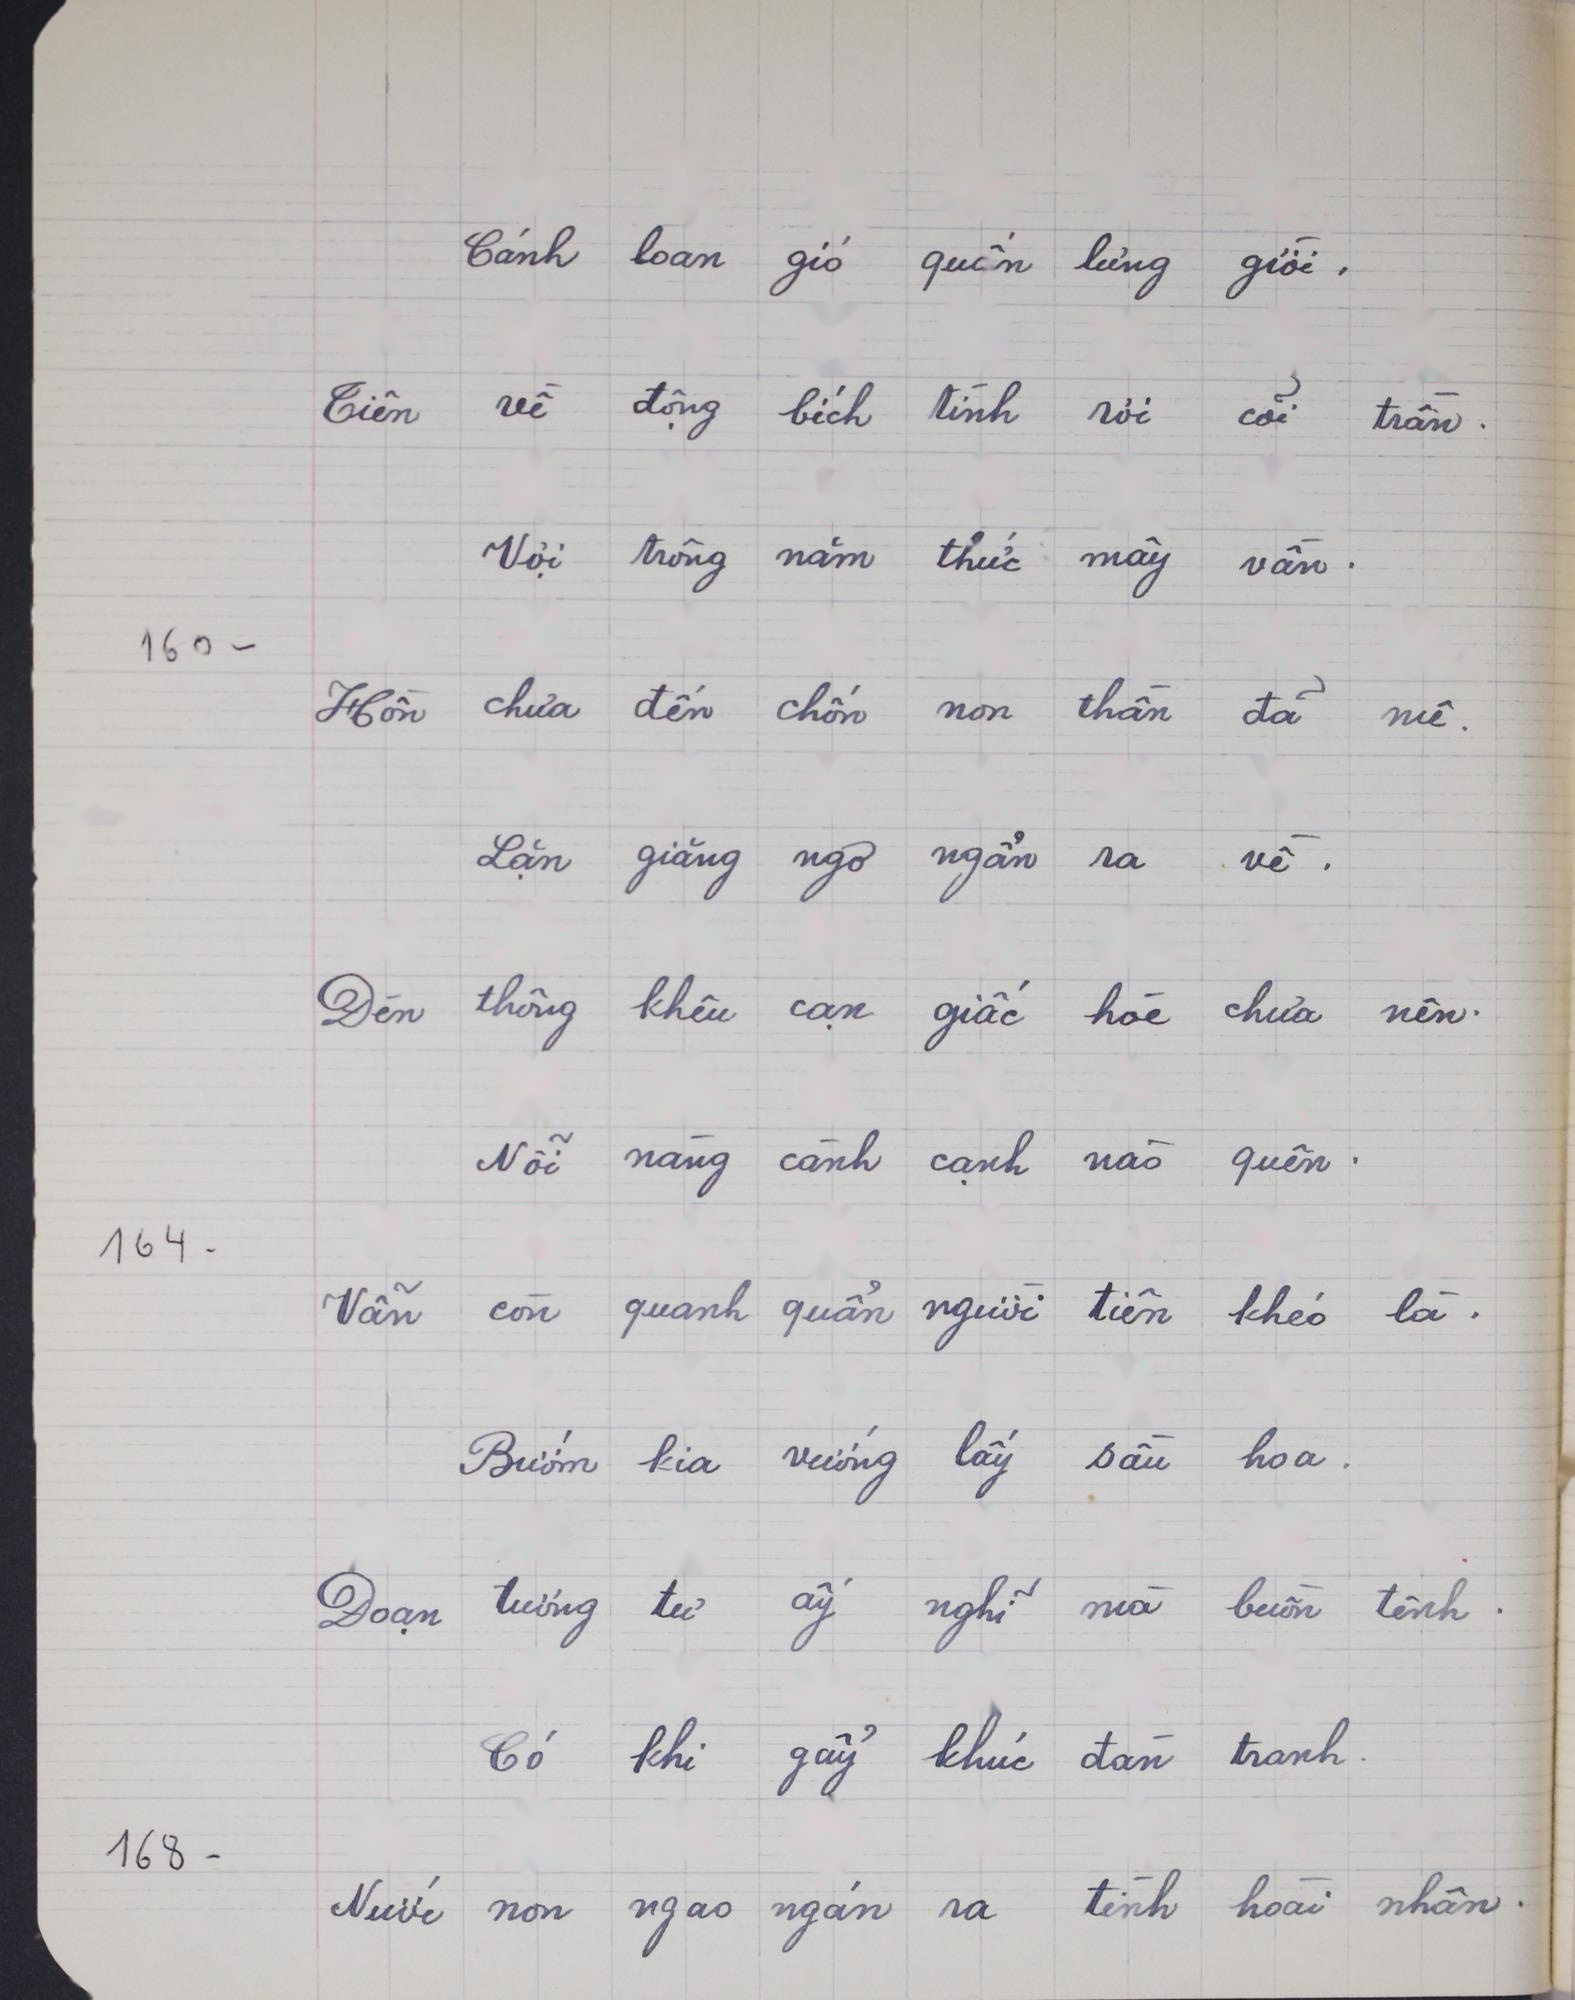 Cánh loan gió quấn lưng giời.
Tiên về động bích tình rơi cõi trần.
Vội trông năm thức mây vần.
160-
Hồn chưa đến chốn non thần đã mê.
Lặn giăng ngơ ngẩn ra về.
Đèn thông khêu cạn giấc hòe chưa nên.
Nỗi nàng cành cạnh nào quên.
164-
Vẫn còn quanh quẩn người tiên khéo là.
Bướm kia vướng lấy sầu hoa.
Đoạn tương tư ấy nghĩ mà buồn tênh.
Có khi gẩy khúc đàn tranh.
168-
Nước non ngao ngán ra tình hoài nhân.